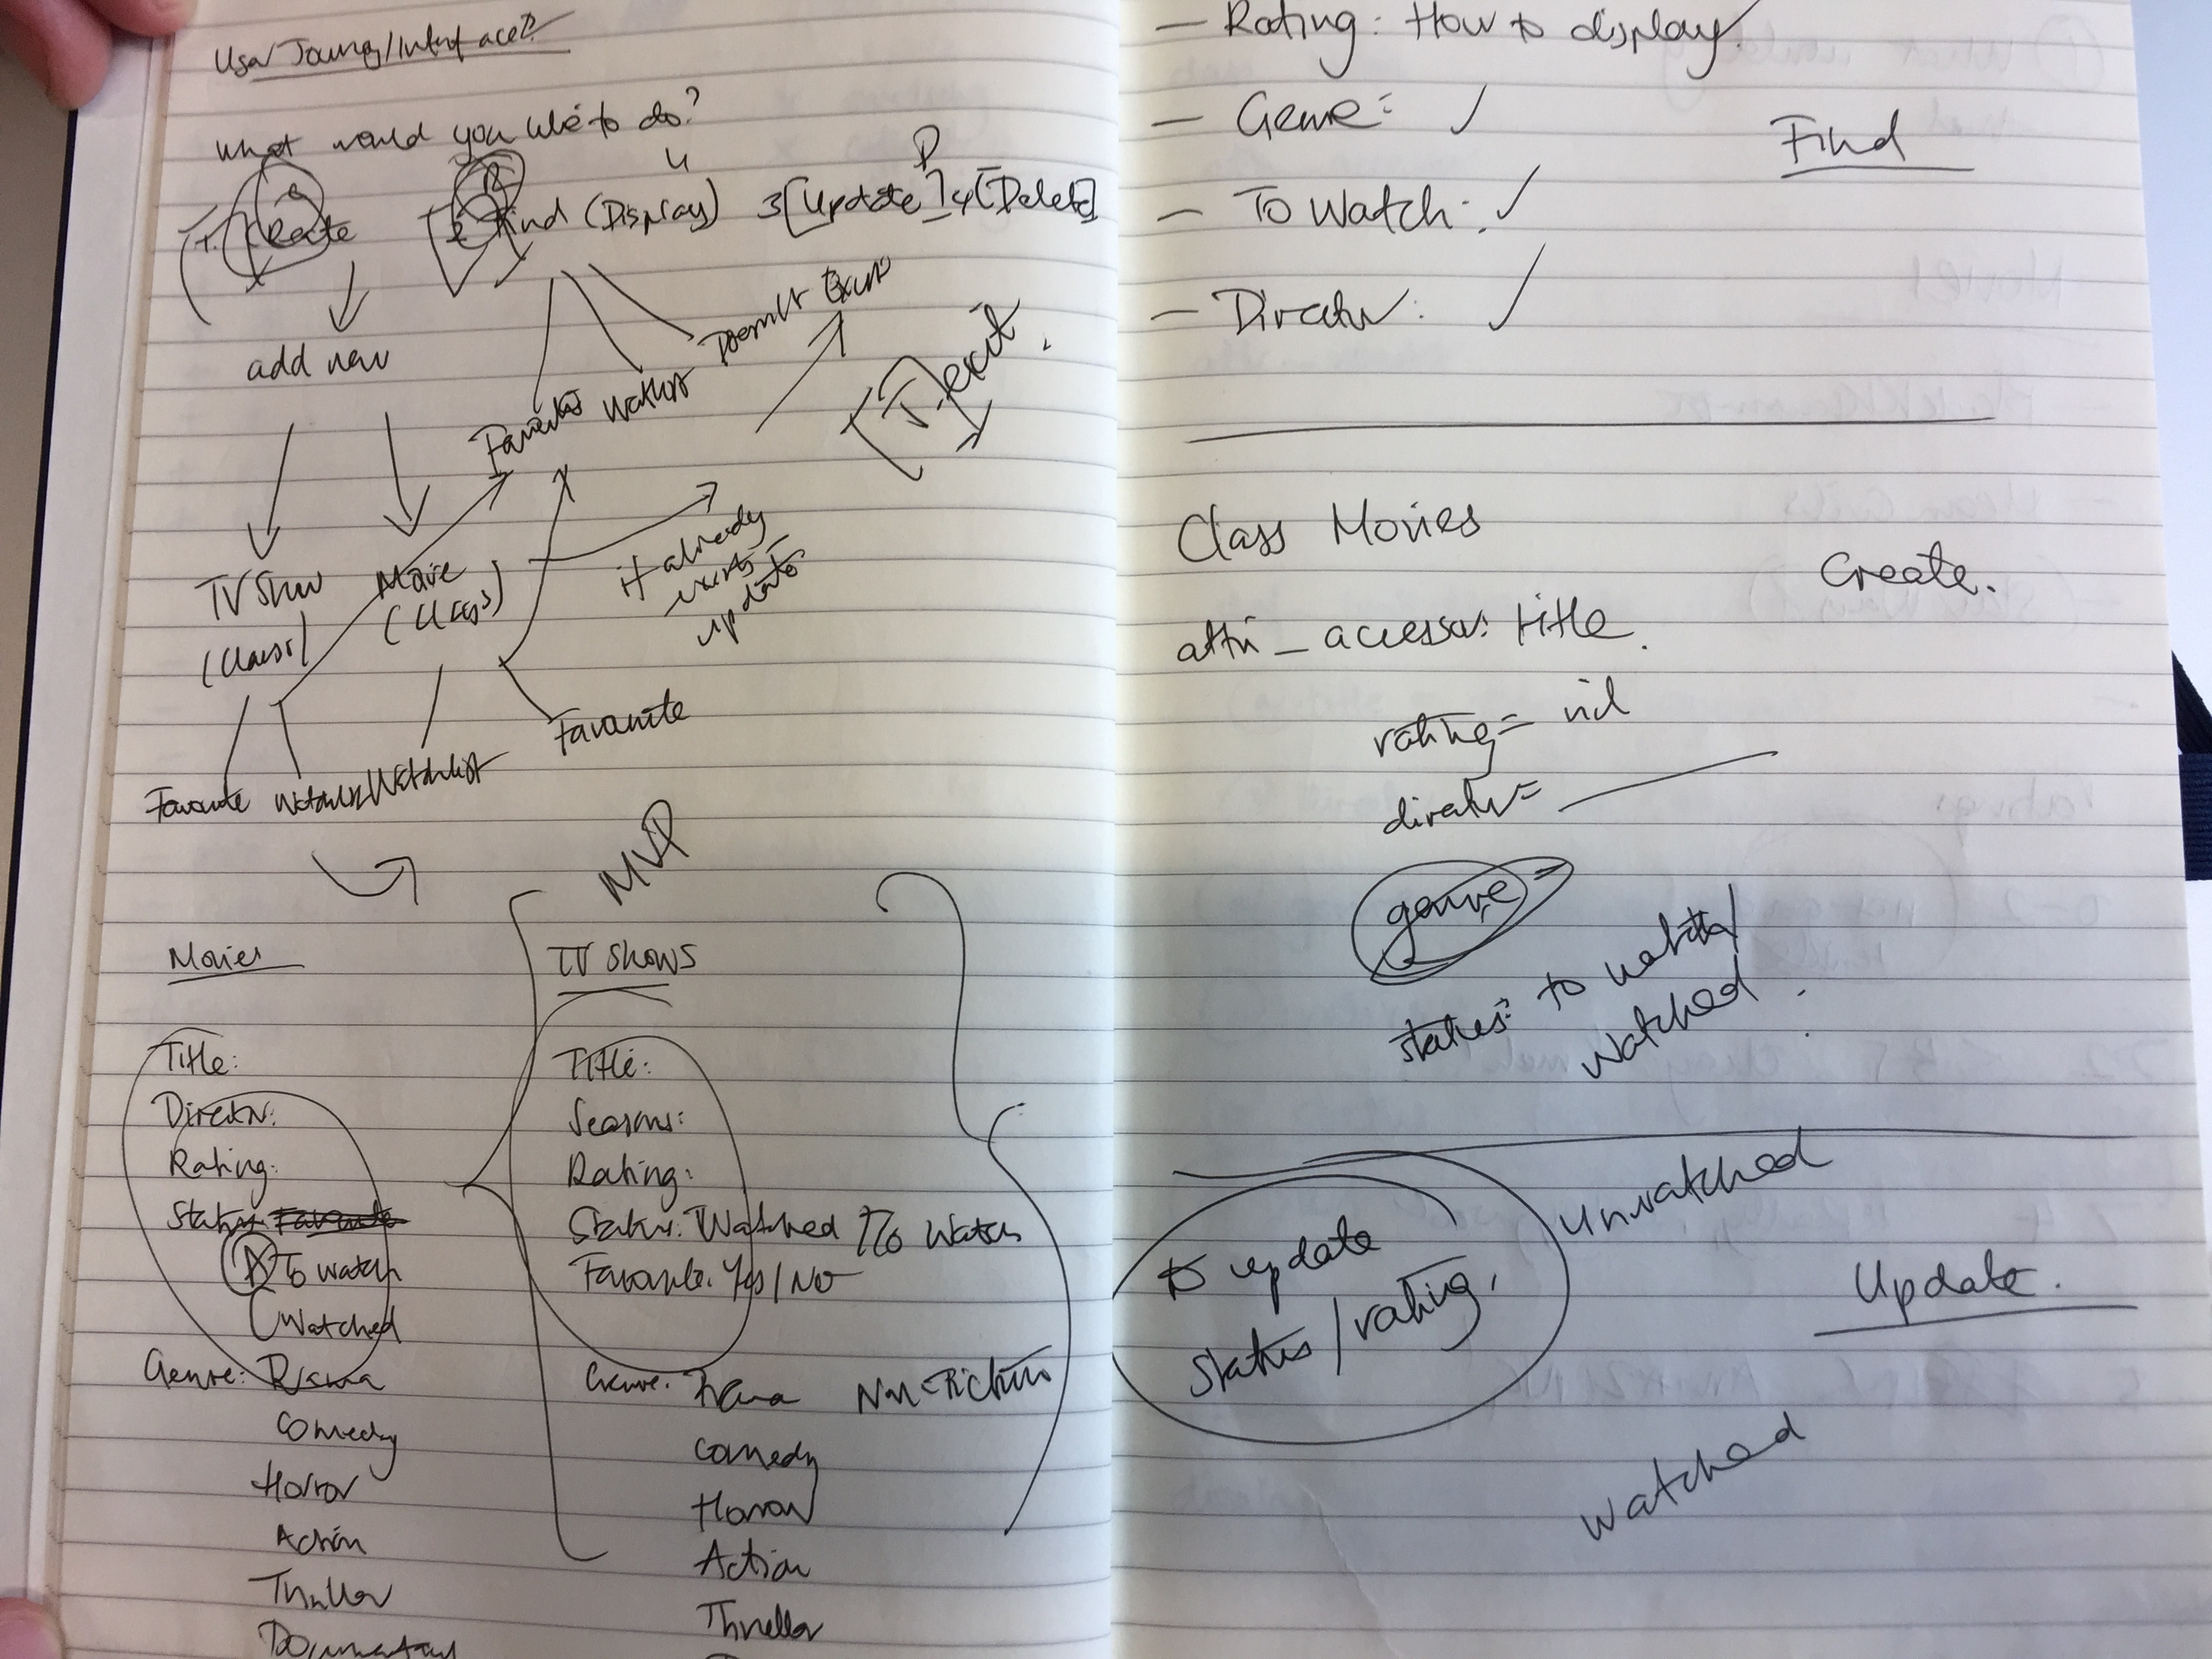 User Journey/Interface?
What would you like to do?
U
D
1. Create
2 Find (Display) 3[Update] 4[Delete]
add new
Favorites Watchlist Doesn't Exist
[ ] exit.
TV Show
(Class)
Movie
(Class)
if already
exists
update
Favourite
Favourite Watchlist Watchlist
MVP
Movies
Title:
Director:
Rating:
Status: Favourite
To watch
Watched
Genre: Drama
Comedy
Horror
Action
Thriller
Documentary
TV Shows
Title:
Seasons:
Rating:
Status: Watched / To Watch
Favourite: Yes/No
Genre: Drama Non-Fiction
Comedy
Horror
Action
Thriller
— Rating: How to display.
— Genre: ✓
Find
— To Watch: ✓
— Director: ✓
Class Movies
Create.
attr_accessor: title.
rating = nil
director = ___
genre =
status: to watch/
watched.
to update
status/rating.
Unwatched
Update.
watched